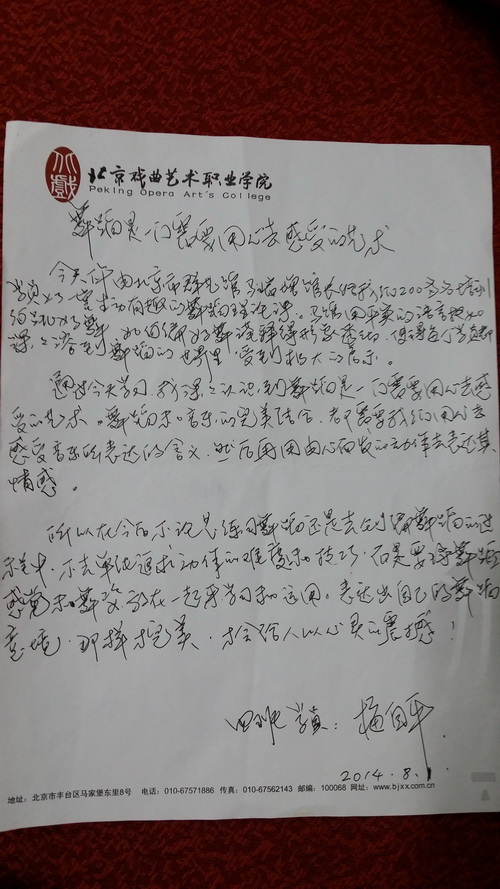 北京戏曲艺术职业学院
Peking Opera Art's College
舞蹈是一门需要用心去感受的艺术
今天由北京市群艺馆马馆长给我们200多名培训
学员上了一堂生动有趣的舞蹈理论课。用平实的语言教如
何跳好舞、如何编好舞诠释得形象透彻,使得每个学员
深深溶到舞蹈的世界里,受到极大的启示。
通过今天学习,我深深认识到舞蹈是一门需要用心去感
受的艺术。舞蹈和音乐的完美结合,都需要我们用心去
感受音乐所表达的含义,然后再用由心而发的动作去表达其
情感。
所以在今后不论是练习舞蹈还是去创编舞蹈的进
程中,不去单纯追求动作的难度和技巧,而是要将舞蹈
感觉和舞姿放在一起来学习和运用,表达出自己的舞蹈
意境,那样才完美,才会给人以心灵的震撼!
四班学员:杨自平
2014.8.1
地址:北京市丰台区马家堡东里8号 电话:010-67571886 传真:010-67562143 邮编:100068 网址:www.bjxx.com.cn